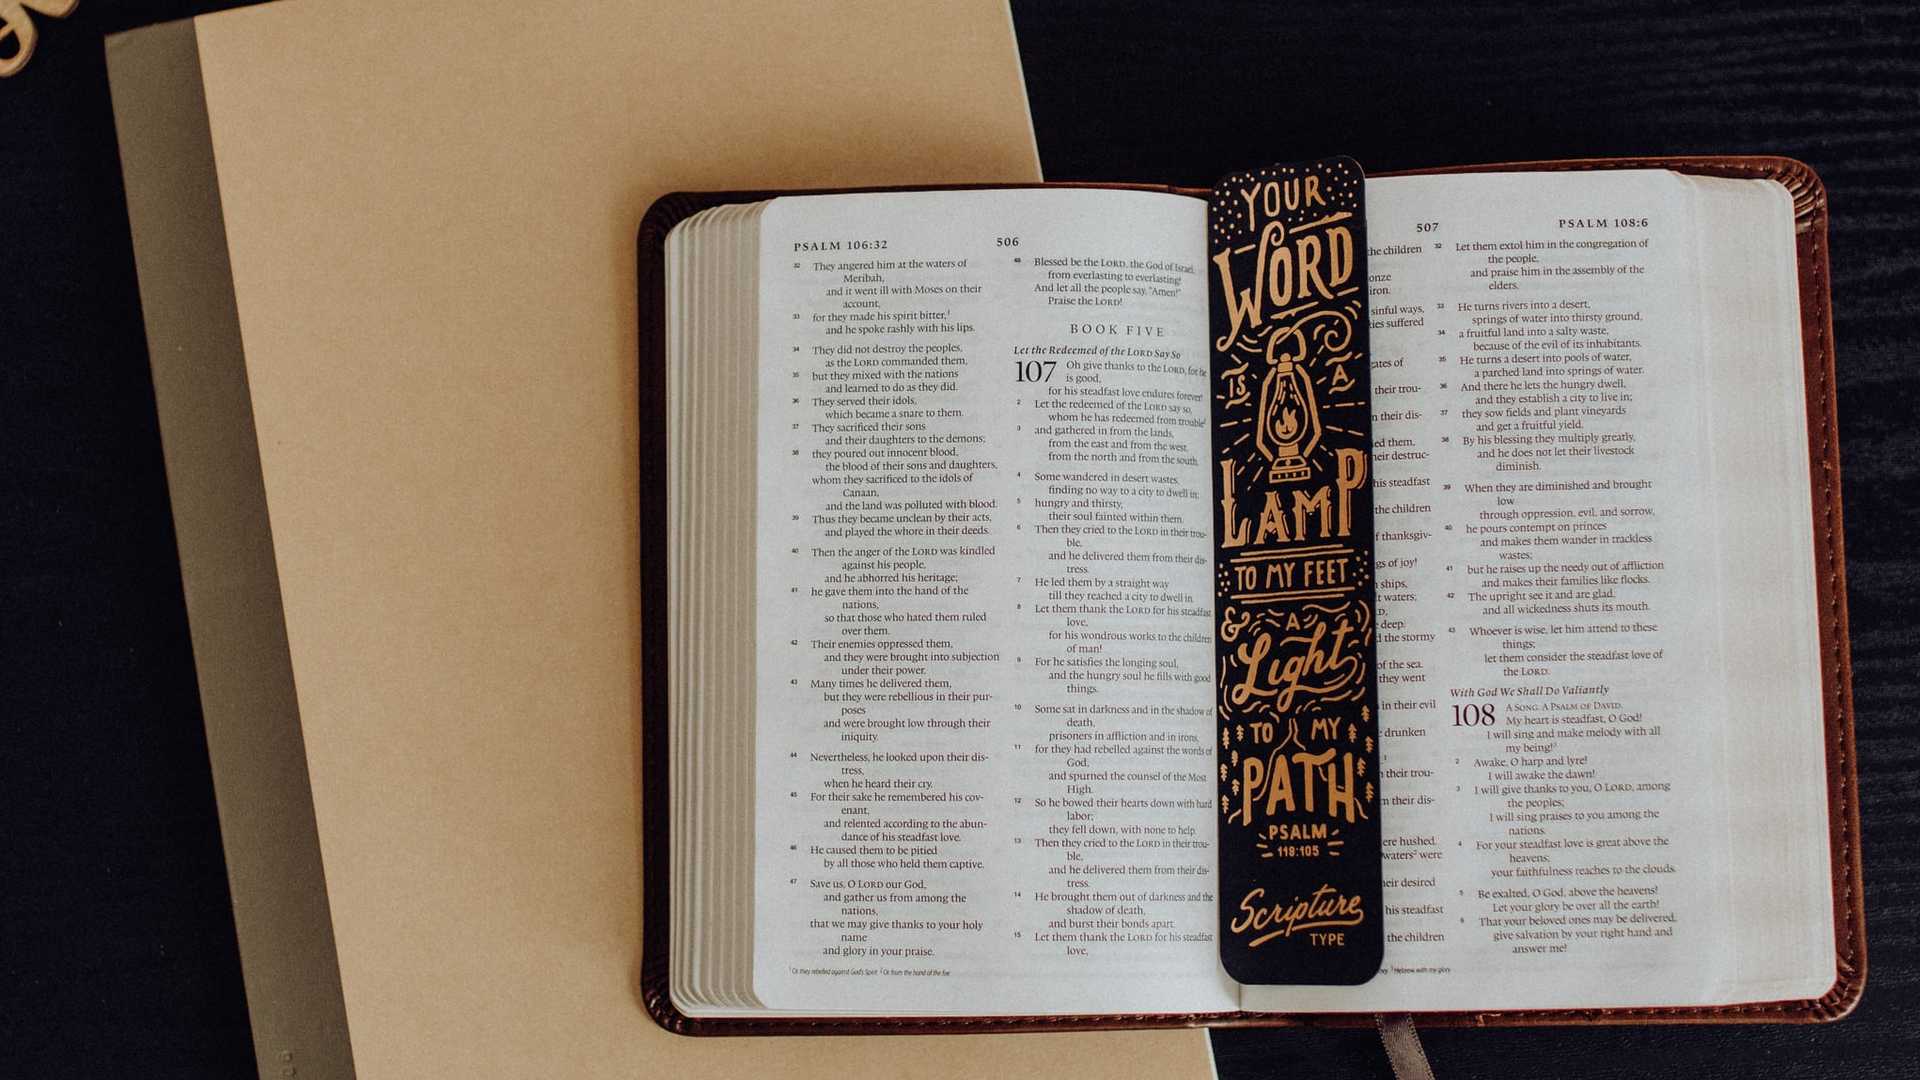 PSALM 106:32
506
32 They angered him at the waters of
Meribah,
and it went ill with Moses on their
account,
33 for they made his spirit bitter,1
and he spoke rashly with his lips.
34 They did not destroy the peoples,
as the LORD commanded them,
35 but they mixed with the nations
and learned to do as they did.
36 They served their idols,
which became a snare to them.
37 They sacrificed their sons
and their daughters to the demons;
38 they poured out innocent blood,
the blood of their sons and daughters,
whom they sacrificed to the idols of
Canaan,
and the land was polluted with blood.
39 Thus they became unclean by their acts,
and played the whore in their deeds.
40 Then the anger of the LORD was kindled
against his people,
and he abhorred his heritage;
41 he gave them into the hand of the
nations,
so that those who hated them ruled
over them.
42 Their enemies oppressed them,
and they were brought into subjection
under their power.
43 Many times he delivered them,
but they were rebellious in their pur-
poses
and were brought low through their
iniquity.
44 Nevertheless, he looked upon their dis-
tress,
when he heard their cry.
45 For their sake he remembered his cov-
enant,
and relented according to the abun-
dance of his steadfast love.
46 He caused them to be pitied
by all those who held them captive.
47 Save us, O LORD our God,
and gather us from among the
nations,
that we may give thanks to your holy
name
and glory in your praise.
1 Or they rebelled against God's Spirit 2 Or from the hand of the foe
48 Blessed be the LORD, the God of Israel,
from everlasting to everlasting!
And let all the people say, "Amen!"
Praise the LORD!
BOOK FIVE
Let the Redeemed of the LORD Say So
107 Oh give thanks to the LORD, for he
is good,
for his steadfast love endures forever!
2 Let the redeemed of the LORD say so,
whom he has redeemed from trouble
3 and gathered in from the lands,
from the east and from the west,
from the north and from the south.
4 Some wandered in desert wastes,
finding no way to a city to dwell in;
5 hungry and thirsty,
their soul fainted within them.
6 Then they cried to the LORD in their trou-
ble,
and he delivered them from their dis-
tress.
7 He led them by a straight way
till they reached a city to dwell in.
8 Let them thank the LORD for his steadfast
love,
for his wondrous works to the children
of man!
9 For he satisfies the longing soul,
and the hungry soul he fills with good
things.
10 Some sat in darkness and in the shadow of
death,
prisoners in affliction and in irons,
11 for they had rebelled against the words of
God,
and spurned the counsel of the Most
High.
12 So he bowed their hearts down with hard
labor;
they fell down, with none to help.
13 Then they cried to the LORD in their trou-
ble,
and he delivered them from their dis-
tress.
14 He brought them out of darkness and the
shadow of death,
and burst their bonds apart.
15 Let them thank the LORD for his steadfast
love,
YOUR
WORD
IS A
LAMP
TO MY FEET
& A
Light
TO MY
PATH
PSALM
119:105
Scripture
TYPE
507
PSALM 108:6
the children
onze
iron.
sinful ways,
ies suffered
ates of
their trou-
their dis-
ed them,
heir destruc-
his steadfast
the children
f thanksgiv-
gs of joy!
ships,
t waters;
D,
deep.
d the stormy
of the sea.
they went
in their evil
drunken
their trou-
m their dis-
ere hushed.
waters2 were
heir desired
his steadfast
the children
32 Let them extol him in the congregation of
the people,
and praise him in the assembly of the
elders.
33 He turns rivers into a desert,
springs of water into thirsty ground,
34 a fruitful land into a salty waste,
because of the evil of its inhabitants.
35 He turns a desert into pools of water,
a parched land into springs of water.
36 And there he lets the hungry dwell,
and they establish a city to live in;
37 they sow fields and plant vineyards
and get a fruitful yield.
38 By his blessing they multiply greatly,
and he does not let their livestock
diminish.
39 When they are diminished and brought
low
through oppression, evil, and sorrow,
40 he pours contempt on princes
and makes them wander in trackless
wastes;
41 but he raises up the needy out of affliction
and makes their families like flocks.
42 The upright see it and are glad,
and all wickedness shuts its mouth.
43 Whoever is wise, let him attend to these
things;
let them consider the steadfast love of
the LORD.
With God We Shall Do Valiantly
108 A SONG. A PSALM OF DAVID.
My heart is steadfast, O God!
I will sing and make melody with all
my being!3
2 Awake, O harp and lyre!
I will awake the dawn!
3 I will give thanks to you, O LORD, among
the peoples;
I will sing praises to you among the
nations.
4 For your steadfast love is great above the
heavens;
your faithfulness reaches to the clouds.
5 Be exalted, O God, above the heavens!
Let your glory be over all the earth!
6 That your beloved ones may be delivered,
give salvation by your right hand and
answer me!
3 Hebrew with my glory